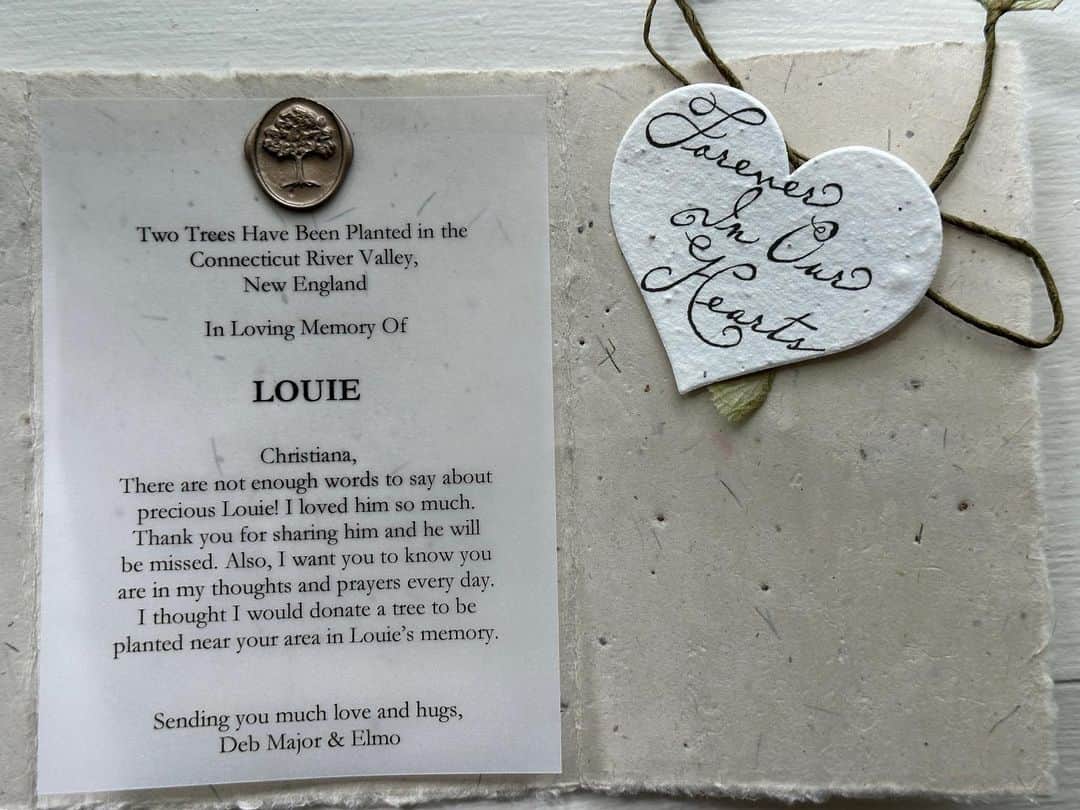 Two Trees Have Been Planted in the
Connecticut River Valley,
New England
In Loving Memory Of
LOUIE
Christiana,
There are not enough words to say about
precious Louie! I loved him so much.
Thank you for sharing him and he will
be missed. Also, I want you to know you
are in my thoughts and prayers every day.
I thought I would donate a tree to be
planted near your area in Louie's memory.
Sending you much love and hugs,
Deb Major & Elmo
Forever
In Our
Hearts